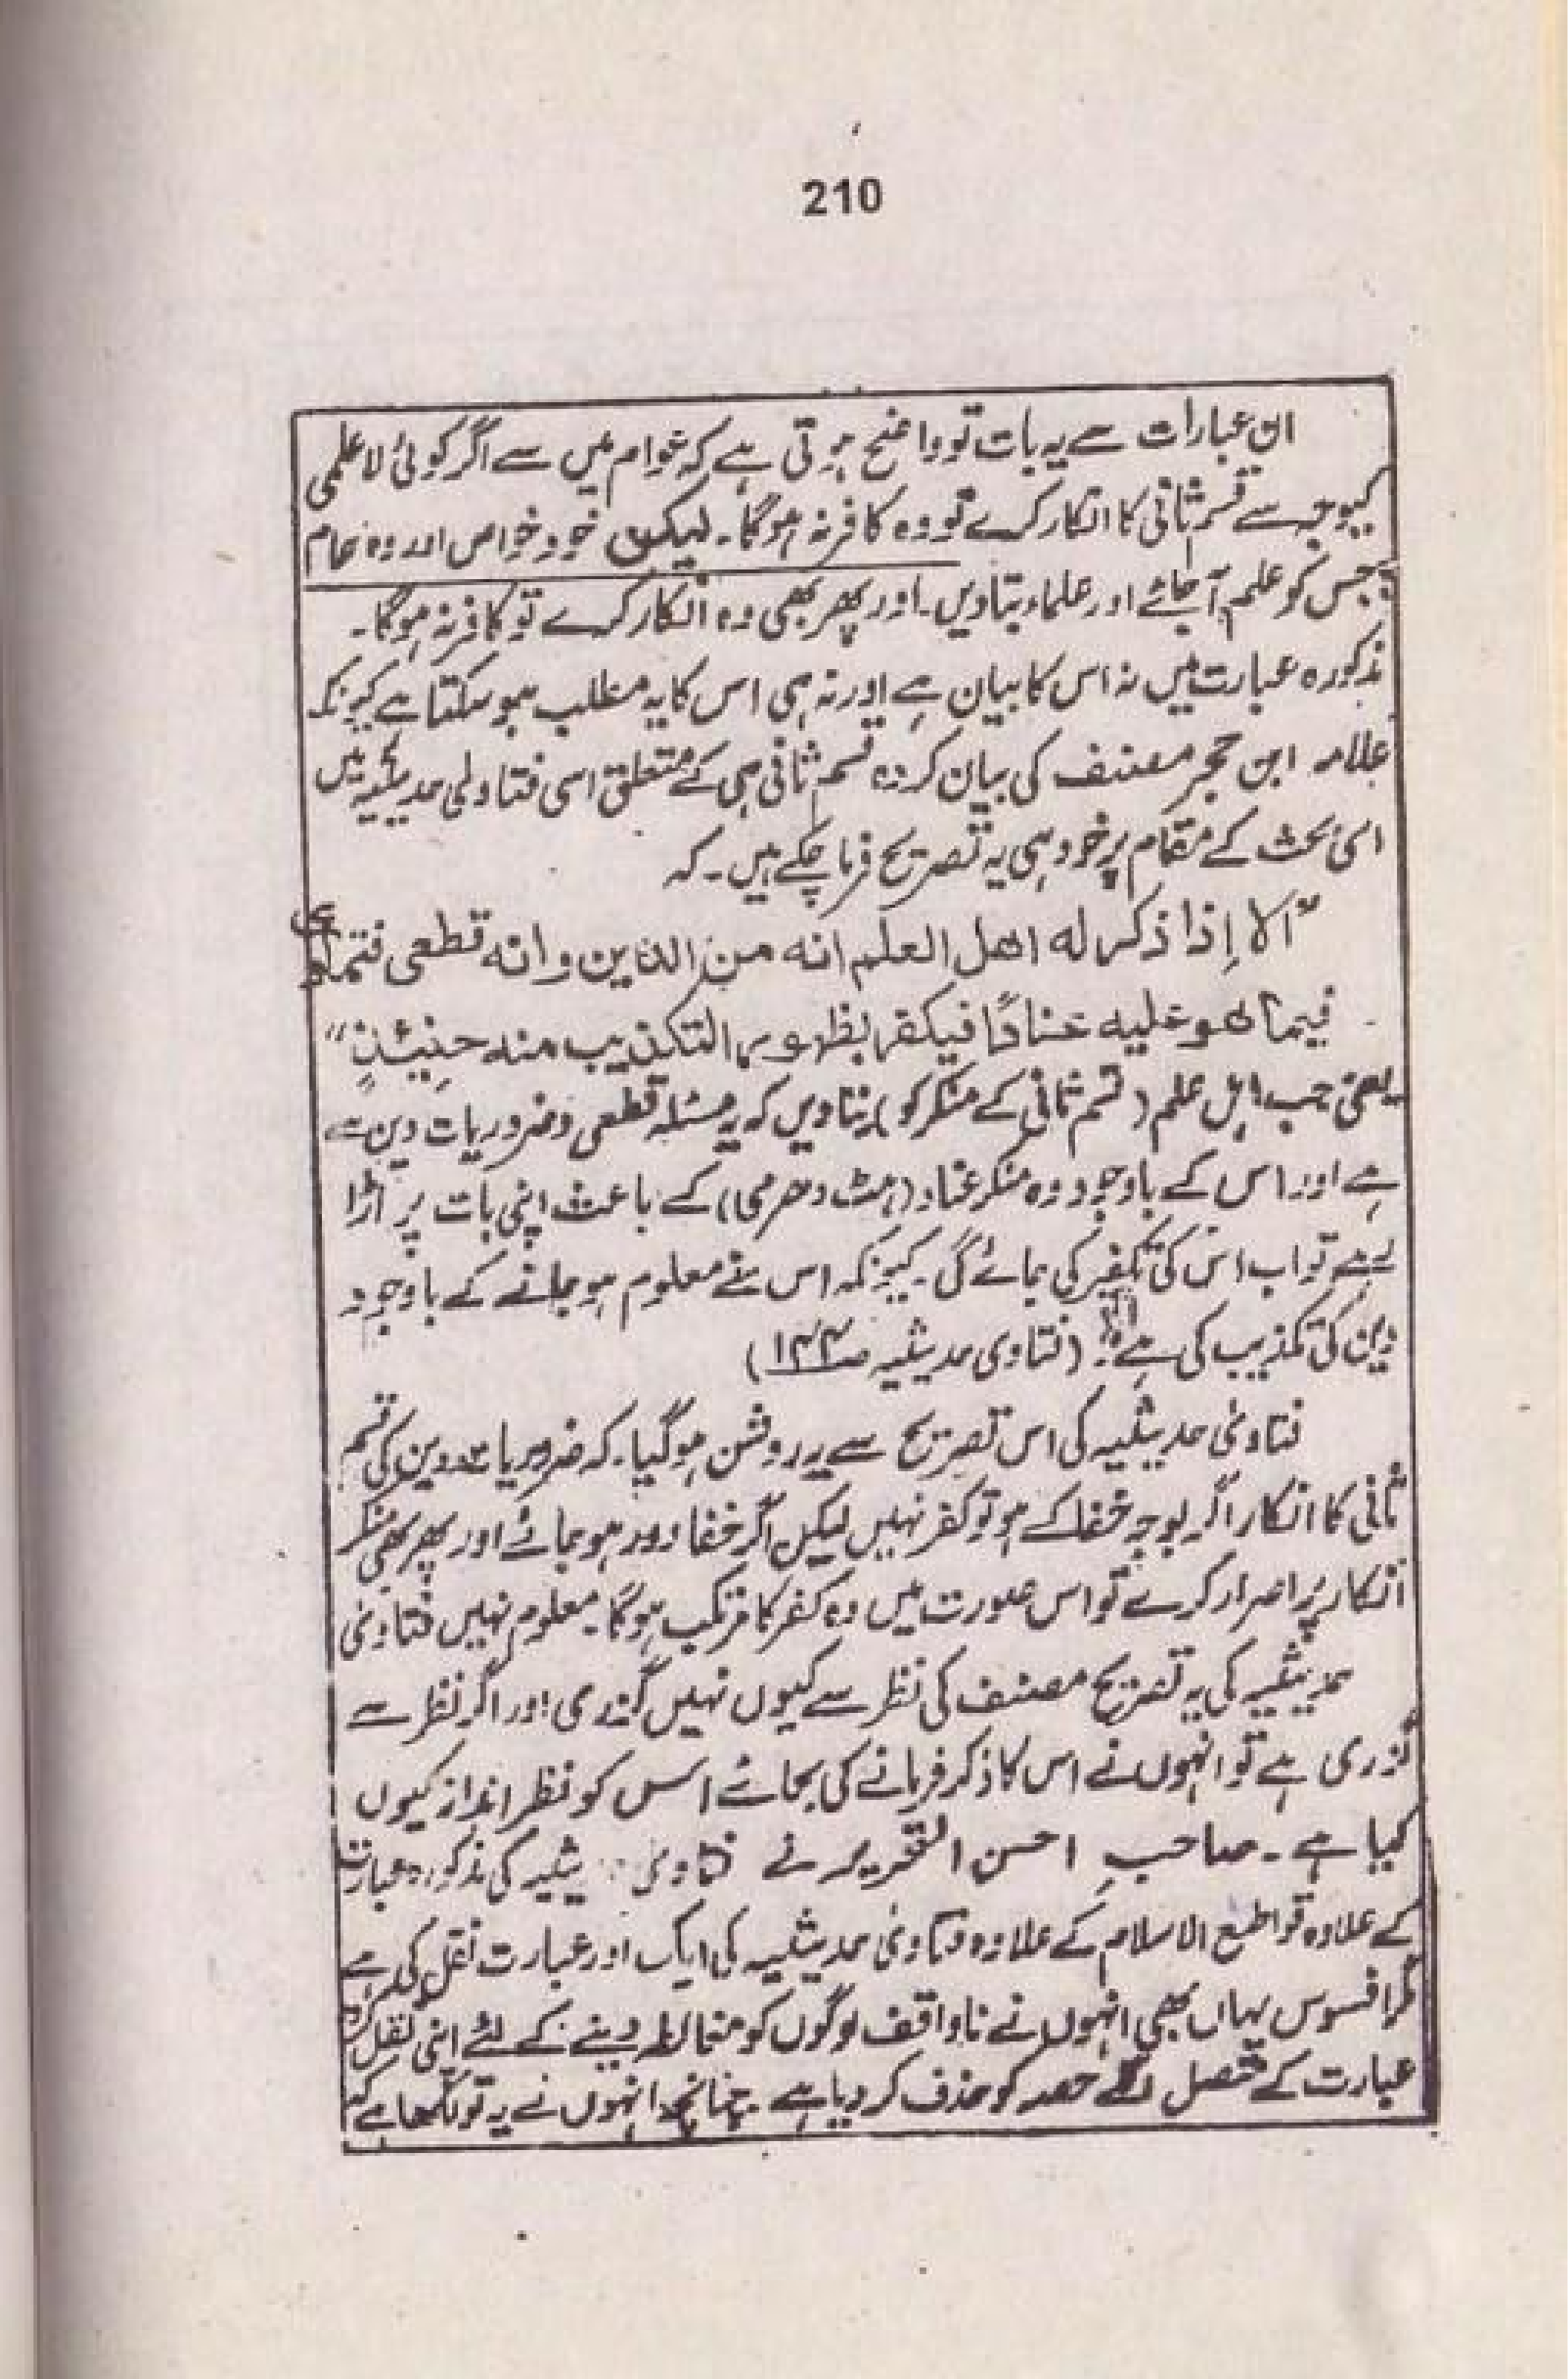 210
ان عبارات سے یہ بات تو واضح ہوتی ہے کہ عوام میں سے اگر کوئی لا علمی
کیوجہ سے قسم ثانی کا انکار کرے تو وہ کافر نہ ہوگا۔ لیکن خود خواص اور وہ عام
جس کو علم آجائے اور علماء بتادیں۔ اور پھر بھی وہ انکار کرے تو کافر نہ ہوگا۔
مذکورہ عبارت میں نہ اس کا بیان ہے اور نہ ہی اس کا یہ مطلب ہو سکتا ہے کیونکہ
علامہ ابن حجر مصنف کی بیان کردہ قسم ثانی ہی کے متعلق اسی فتاوٰی حدیثیہ میں
اسی بحث کے مقام پر خود ہی یہ تصریح فرما چکے ہیں۔ کہ
"الا إذا ذکر له اهل العلم انه من الدین وانه قطعی فتمادی
فیما هو علیه عنادًا فیکفر بظهور التکذیب منه حینئذٍ"
یعنی جب اہل علم (قسم ثانی کے منکر کو) بتادیں کہ یہ مسئلہ قطعی و ضروریات دین سے
ہے اور اس کے باوجود وہ منکر عناد (ہٹ دھرمی) کے باعث اپنی بات پر اڑا
رہے تو اب اس کی تکفیر کی جائے گی۔ کیونکہ اس نے معلوم ہو جانے کے باوجود
دین کی تکذیب کی ہے"۔ (فتاوی حدیثیہ صـ۱۴۴)
فتاوٰی حدیثیہ کی اس تصریح سے یہ روشن ہو گیا۔ کہ ضروریات دین کی قسم
ثانی کا انکار اگر بوجہ خفا کے ہو تو کفر نہیں لیکن اگر خفا دور ہو جائے اور پھر بھی منکر
انکار پر اصرار کرے تو اس صورت میں وہ کفر کا مرتکب ہوگا۔ معلوم نہیں فتاوٰی
حدیثیہ کی یہ تصریح مصنف کی نظر سے کیوں نہیں گزری اور اگر نظر سے
گزری ہے تو انہوں نے اس کا ذکر فرمانے کی بجائے اس کو نظر انداز کیوں
کیا ہے۔ صاحبِ احسن التحریر نے فتاوی یثیہ کی مذکورہ عبارت
کے علاوہ قواطع الاسلام کے علاوہ فتاوٰی حدیثیہ کی ایک اور عبارت نقل کی ہے
مگر افسوس یہاں بھی انہوں نے ناواقف لوگوں کو مغالطہ دینے کے لئے اپنی نقل کردہ
عبارت کے متصل اگلے حصہ کو حذف کر دیا ہے۔ چنانچہ انہوں نے یہ تو لکھا ہے کہ